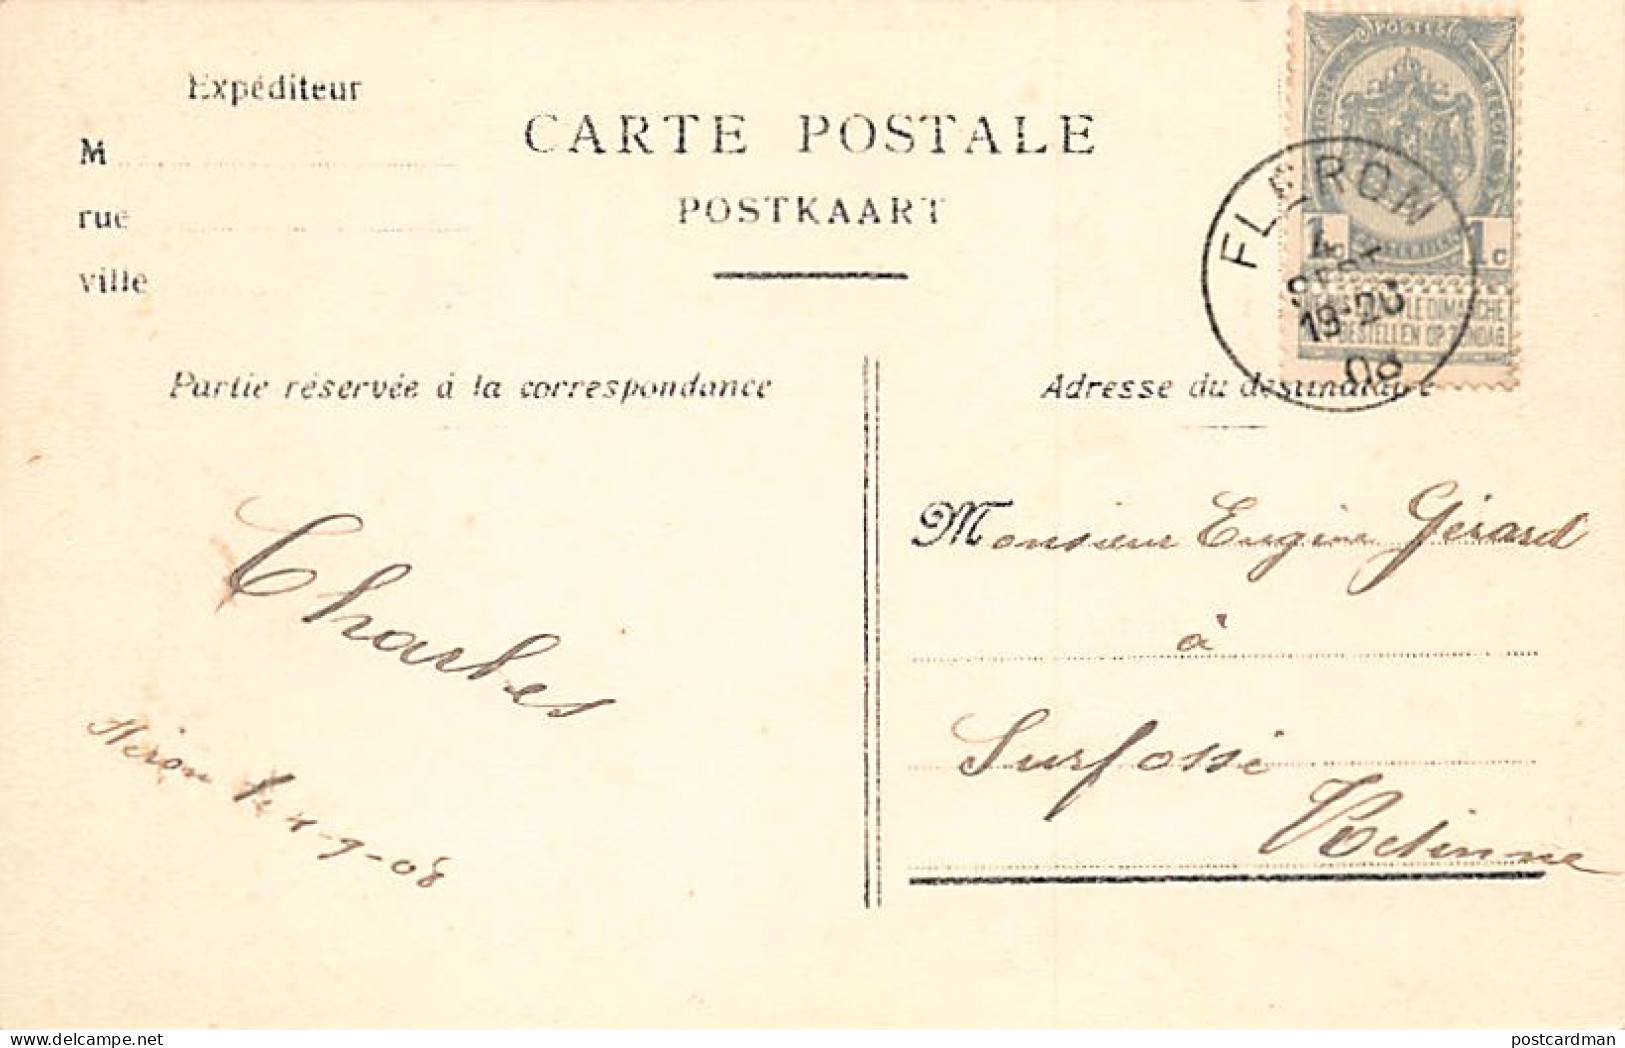 Expéditeur
M
rue
ville
CARTE POSTALE
POSTKAART
POSTES
BELGIQUE
BELGIË
1c 1c
NE PAS LIVRER LE DIMANCHE
NIET BESTELLEN OP ZONDAG
FLÉRON
4
SEPT
19-20
08
Partie réservée à la correspondance
Adresse du destinataire
Charles
le 4-9-08
Monsieur Eugène Gérard
à
Surfossé
Retinne
delcampe.net
postcardman